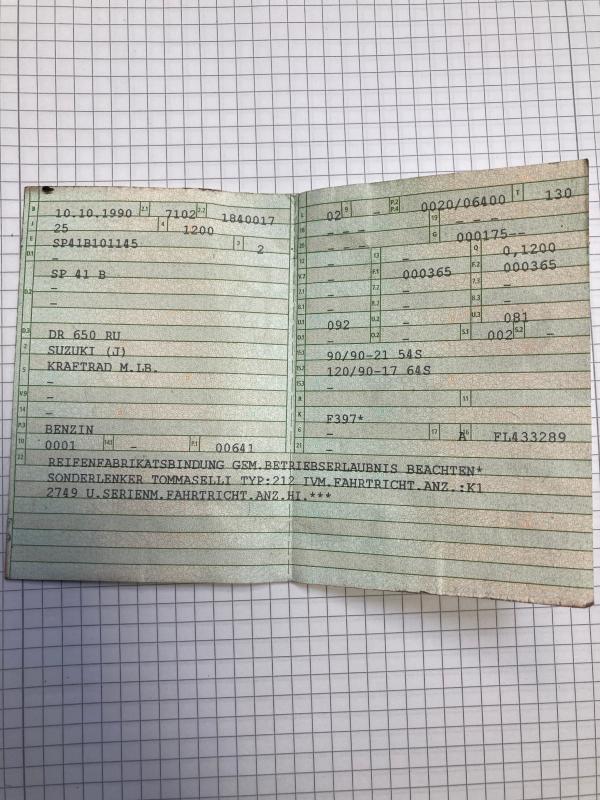 B 10.10.1990 2.1 7102 2.2 1840017
J 25 4 1200
E SP41B101145 3 2
D.1 –
SP 41 B
–
D.2 –
D.3 DR 650 RU
2 SUZUKI (J)
5 KRAFTRAD M.LB.
–
V.9 –
14 –
P.3 BENZIN
10 0001 14.1 – P.1 00641
L 02 9 – P.2 P.4 0020/06400 T 130
18 – – – 19 – – –
20 – – – G 000175––
12 – 13 – Q 0,1200
V.7 – F.1 000365 F.2 000365
7.1 – 7.2 – 7.3 –
8.1 – 8.2 – 8.3 –
U.1 092 U.2 – U.3 081
O.1 – O.2 – S.1 002 S.2 –
15.1 90/90-21 54S
15.2 120/90-17 64S
15.3 –
R 11
K F397*
6 – 17 A 16 FL433289
21 –
22 REIFENFABRIKATSBINDUNG GEM.BETRIEBSERLAUBNIS BEACHTEN*
SONDERLENKER TOMMASELLI TYP:212 IVM.FAHRTRICHT.ANZ.:K1
2749 U.SERIENM.FAHRTRICHT.ANZ.HI.***